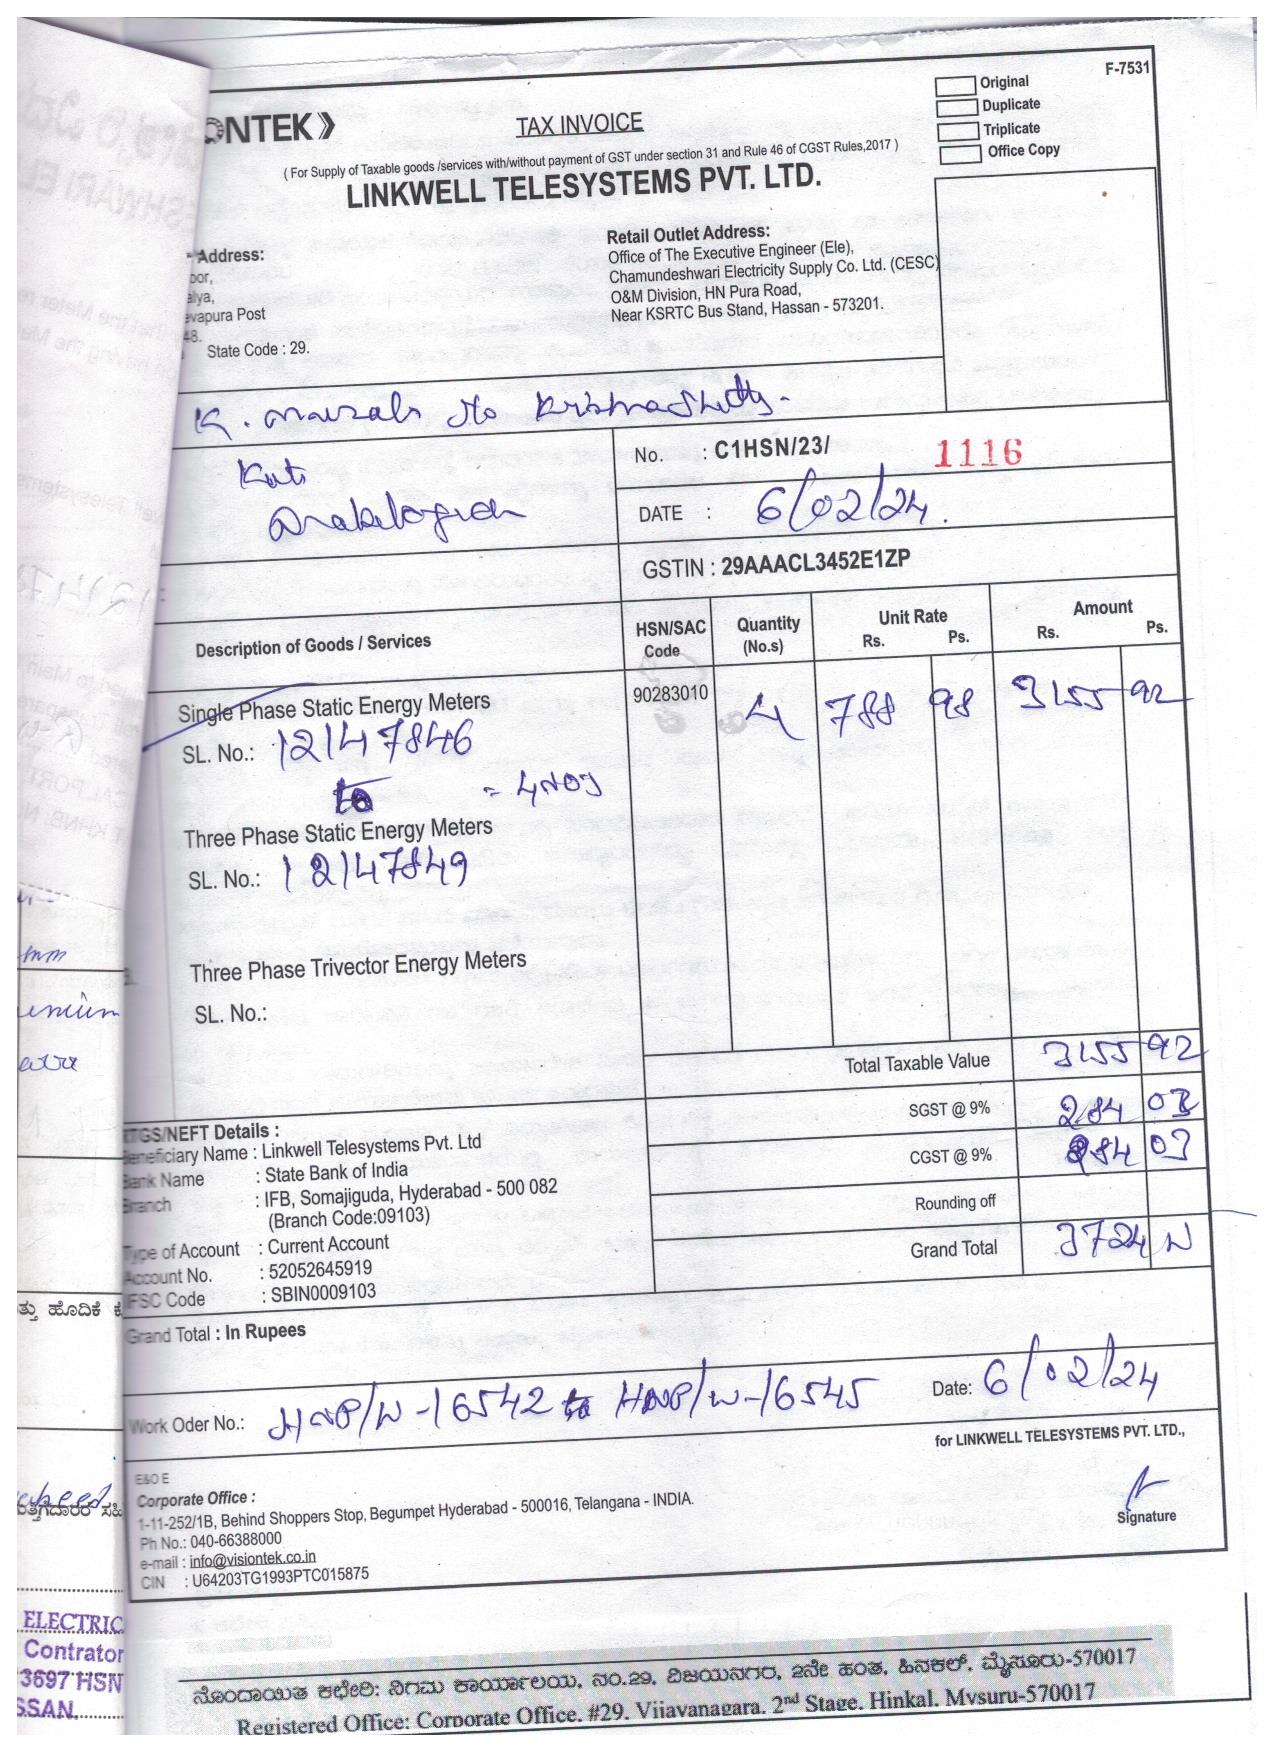 F-7531
Original
Duplicate
Triplicate
Office Copy
ONTEK
TAX INVOICE
( For Supply of Taxable goods /services with/without payment of GST under section 31 and Rule 46 of CGST Rules,2017 )
LINKWELL TELESYSTEMS PVT. LTD.
Address:
alya,
evapura Post
48.
State Code : 29.
Retail Outlet Address:
Office of The Executive Engineer (Ele),
Chamundeshwari Electricity Supply Co. Ltd. (CESC)
O&M Division, HN Pura Road,
Near KSRTC Bus Stand, Hassan - 573201.
K.
No. : C1HSN/23/ 1116
DATE : 6/02/24.
GSTIN : 29AAACL3452E1ZP
Description of Goods / Services HSN/SAC Code Quantity (No.s) Unit Rate Rs. Ps. Amount Rs. Ps.
Single Phase Static Energy Meters 90283010 4 788 98 3155 92
SL. No.: 12147846
to = 4 NOS
Three Phase Static Energy Meters
SL. No.: 12147849
Three Phase Trivector Energy Meters
SL. No.:
Total Taxable Value 3155 92
SGST @ 9% 284 03
CGST @ 9% 284 03
Rounding off
Grand Total 3724
RTGS/NEFT Details :
Beneficiary Name : Linkwell Telesystems Pvt. Ltd
Bank Name : State Bank of India
Branch : IFB, Somajiguda, Hyderabad - 500 082
(Branch Code:09103)
Type of Account : Current Account
Account No. : 52052645919
IFSC Code : SBIN0009103
Grand Total : In Rupees
Work Oder No.: HNP/W-16542 to HNP/W-16545
Date: 6/02/24
for LINKWELL TELESYSTEMS PVT. LTD.,
Signature
E&O E
Corporate Office :
1-11-252/1B, Behind Shoppers Stop, Begumpet Hyderabad - 500016, Telangana - INDIA.
Ph No.: 040-66388000
e-mail : info@visiontek.co.in
CIN : U64203TG1993PTC015875
ELECTRIC
Contrator
3697 HSN
SSAN.
ನೊಂದಾಯಿತ ಕಛೇರಿ: ನಿಗಮ ಕಾರ್ಯಾಲಯ, ನಂ.29, ವಿಜಯನಗರ, 2ನೇ ಹಂತ, ಹಿನಕಲ್, ಮೈಸೂರು-570017
Registered Office: Corporate Office, #29, Vijayanagara, 2nd Stage, Hinkal, Mysuru-570017